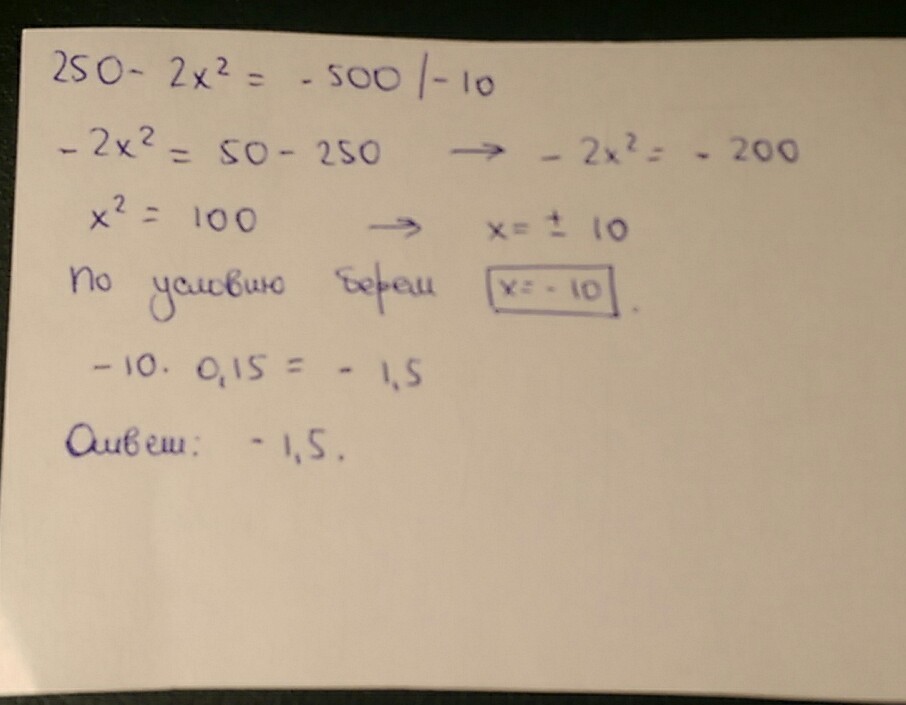 250 - 2x² = - 500 / - 10
- 2x² = 50 - 250 → - 2x² = - 200
x² = 100 → x = ± 10
По условию берем x = - 10.
- 10 · 0,15 = - 1,5
Ответ: - 1,5.